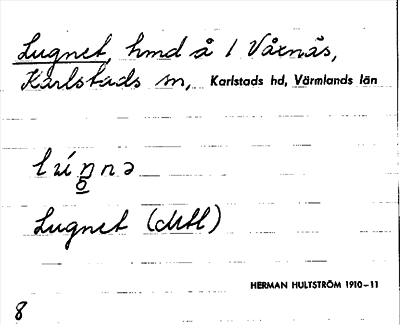 Lugnet, hmd å 1 Våxnäs,
Karlstads sn, Karlstads hd, Värmlands län
Lugnet
HERMAN HULTSTRÖM 1910-11
8